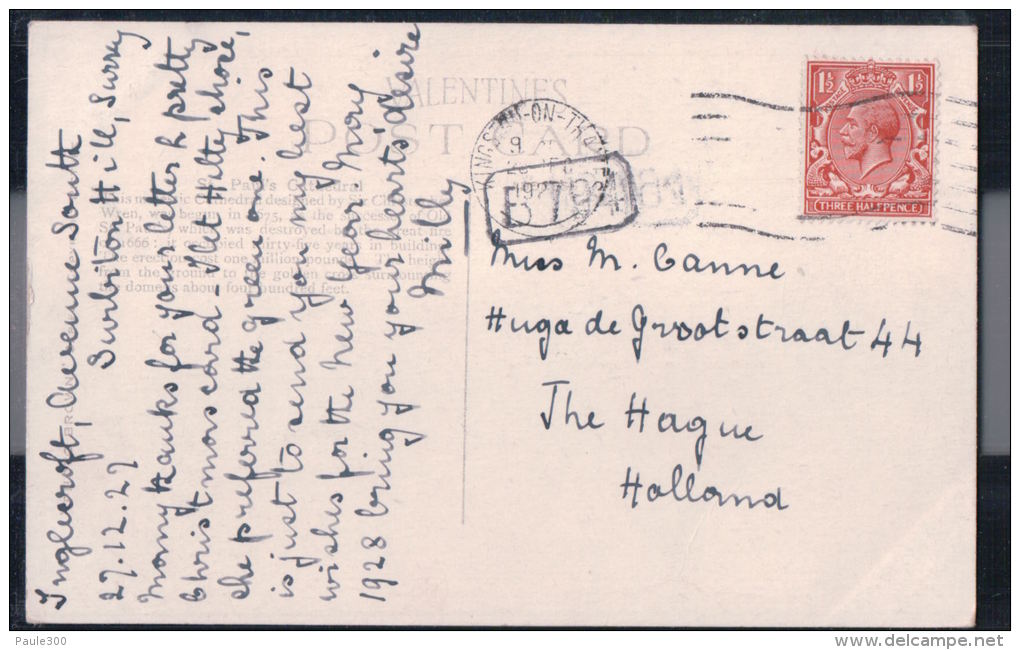 VALENTINE'S
POST CARD
St. Paul's Cathedral
This majestic Cathedral designed by Sir Christopher
Wren, was begun in 1675, as the successor of Old
St. Paul's, which was destroyed by the great fire
of 1666; it occupied thirty-five years in building
The erection cost one million pounds. The height
from the ground to the golden cross surmounting
the dome is about four hundred feet.
Inglecroft, Avenue South
Surbiton Hill, Surrey
27.12.27
Many thanks for your letter & pretty
Christmas card - I let Hetty choose,
she preferred the green one. This
is just to send you my best
wishes for the New Year. May
1928 bring you your hearts' desire
Milly
KINGSTON-ON-THAMES
1927
1½ 1½
THREE HALFPENCE
Miss M. Canne
Hugo de Grootstraat 44
The Hague
Holland
Paule300
www.delcampe.net